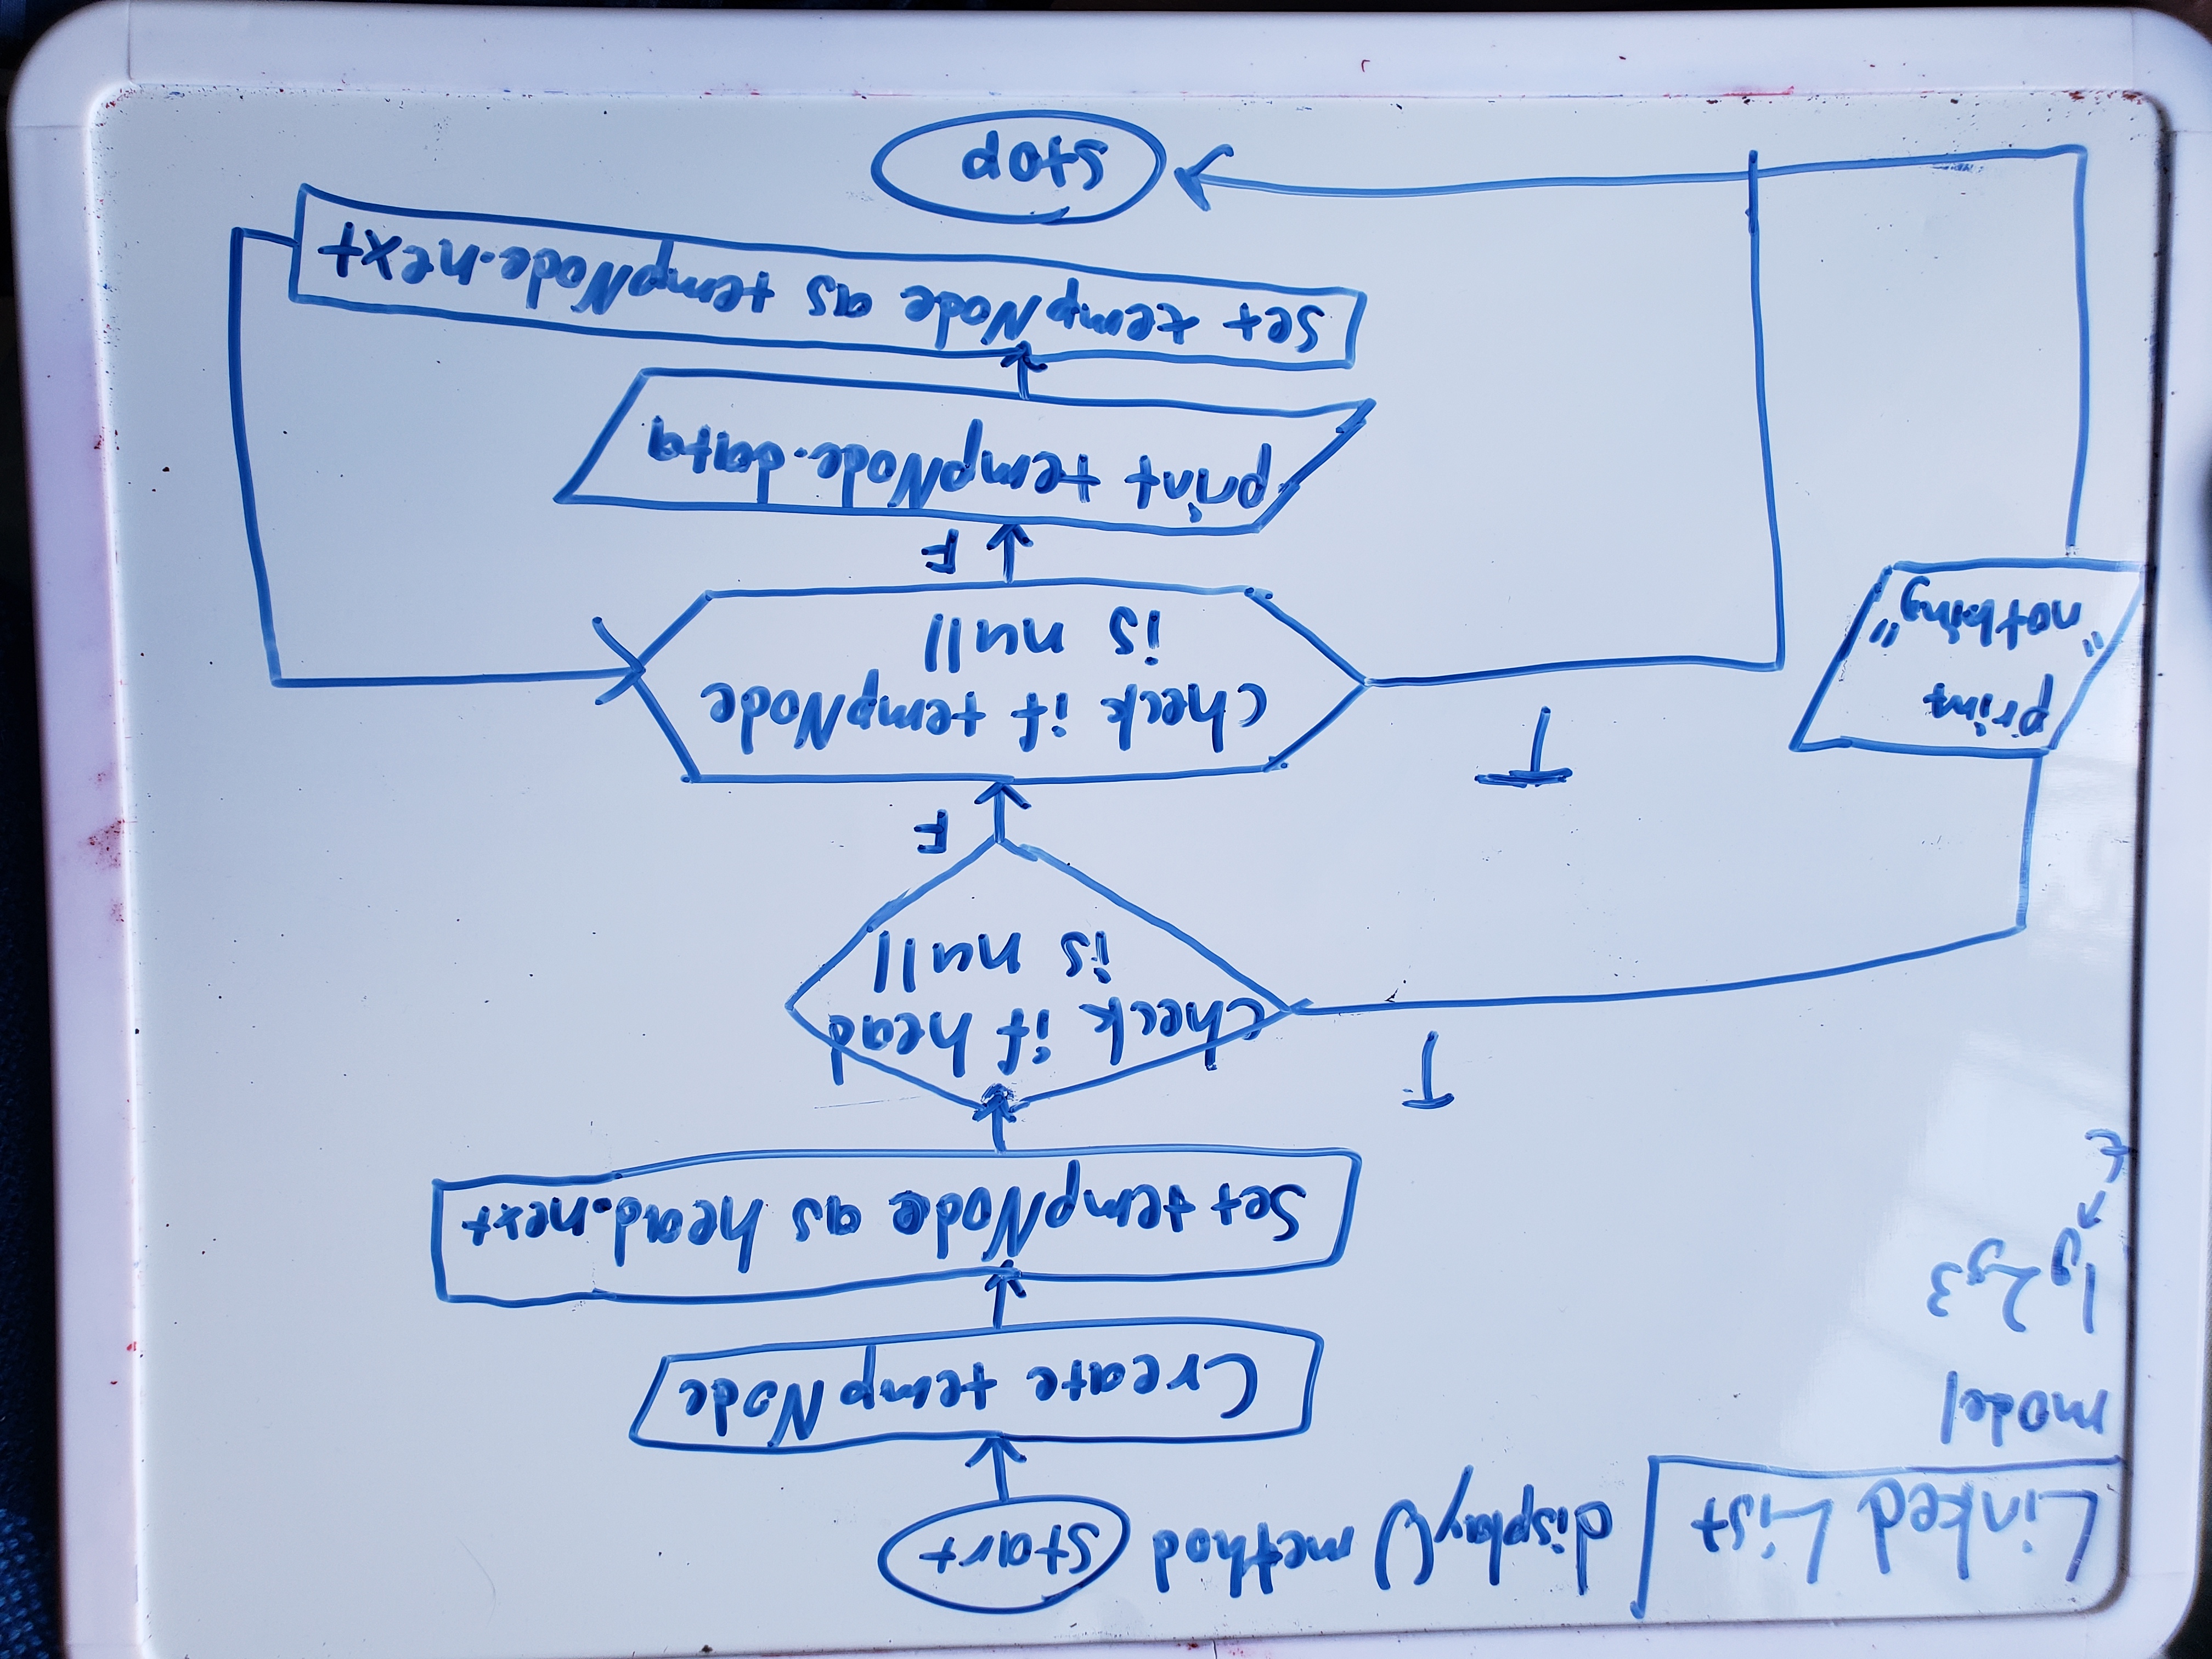 Linked List
display() method
start
model
1,2,3
t
Create tempNode
Set tempNode as head.next
T
check if head
is null
F
T
print
"nothing"
check if tempNode
is null
F
print tempNode.data
set tempNode as tempNode.next
stop